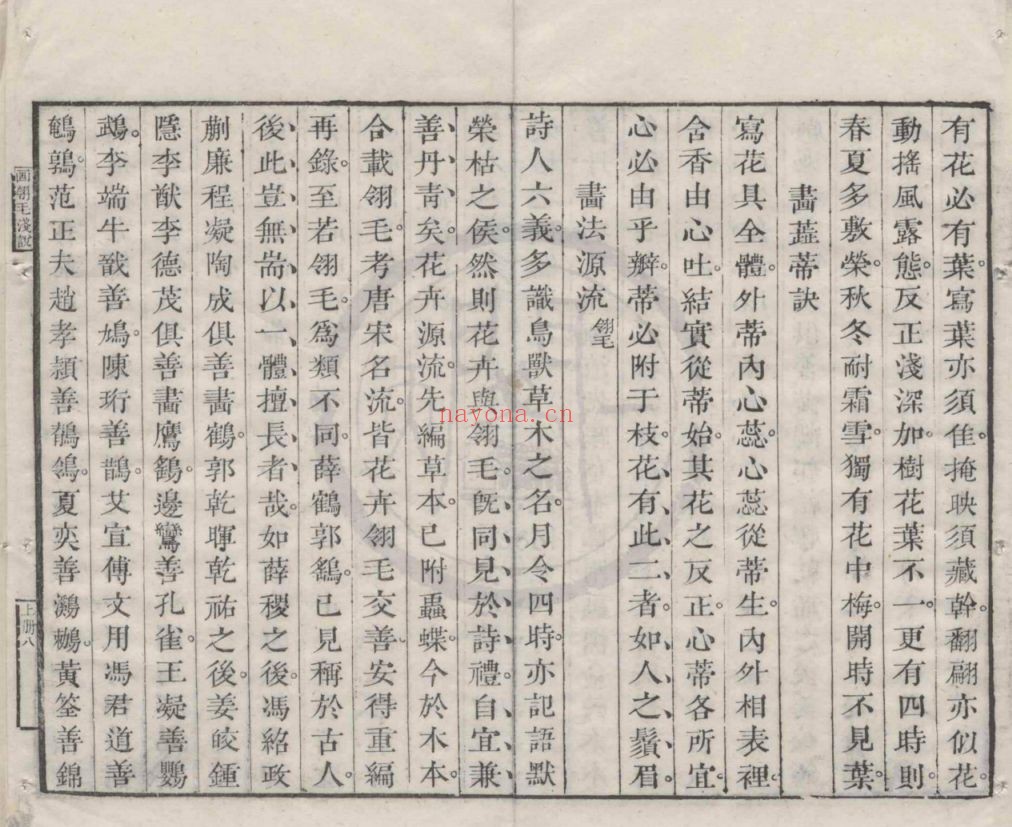 有花必有葉。寫葉亦須佳。掩映須藏幹。翻翩亦似花
動搖風露態。反正淺深加。樹花葉不一。更有四時則
春夏多敷榮。秋冬耐霜雪。獨有花中梅。開時不見葉。
畵蕋蒂訣
寫花具全體。外蒂內心蕊。心蕊從蒂生。內外相表裡。
含香由心吐。結實從蒂始。其花之反正。心蒂各所宜
心必由乎瓣。蒂必附于枝。花有此二者。如人之鬚眉
畵法源流 翎毛
詩人六義。多識鳥獸草木之名。月令四時。亦記語默
榮枯之候。然則花卉與翎毛。旣同見於詩禮。自宜兼
善丹靑矣。花卉源流。先編草本。已附蟲蝶。今於木本。
合載翎毛。考唐宋名流。皆花卉翎毛交善。安得重編
再錄。至若翎毛。爲類不同。薛鶴郭鷂。已見稱於古人。
後此豈無耑以一體擅長者哉。如薛稷之後。馮紹政
蒯廉程凝陶成俱善畵鶴。郭乾暉乾祐之後。姜皎鍾
隱李猷李德茂俱善畵鷹鷂。邊鸞善孔雀。王凝善鸚
鵡。李端牛戩善鳩。陳珩善鵲。艾宣傅文用馮君道善
鵪鶉。范正夫趙孝穎善鶺鴒。夏奕善鸂鶒。黃筌善錦
画翎毛淺說
上册八
nayona.cn